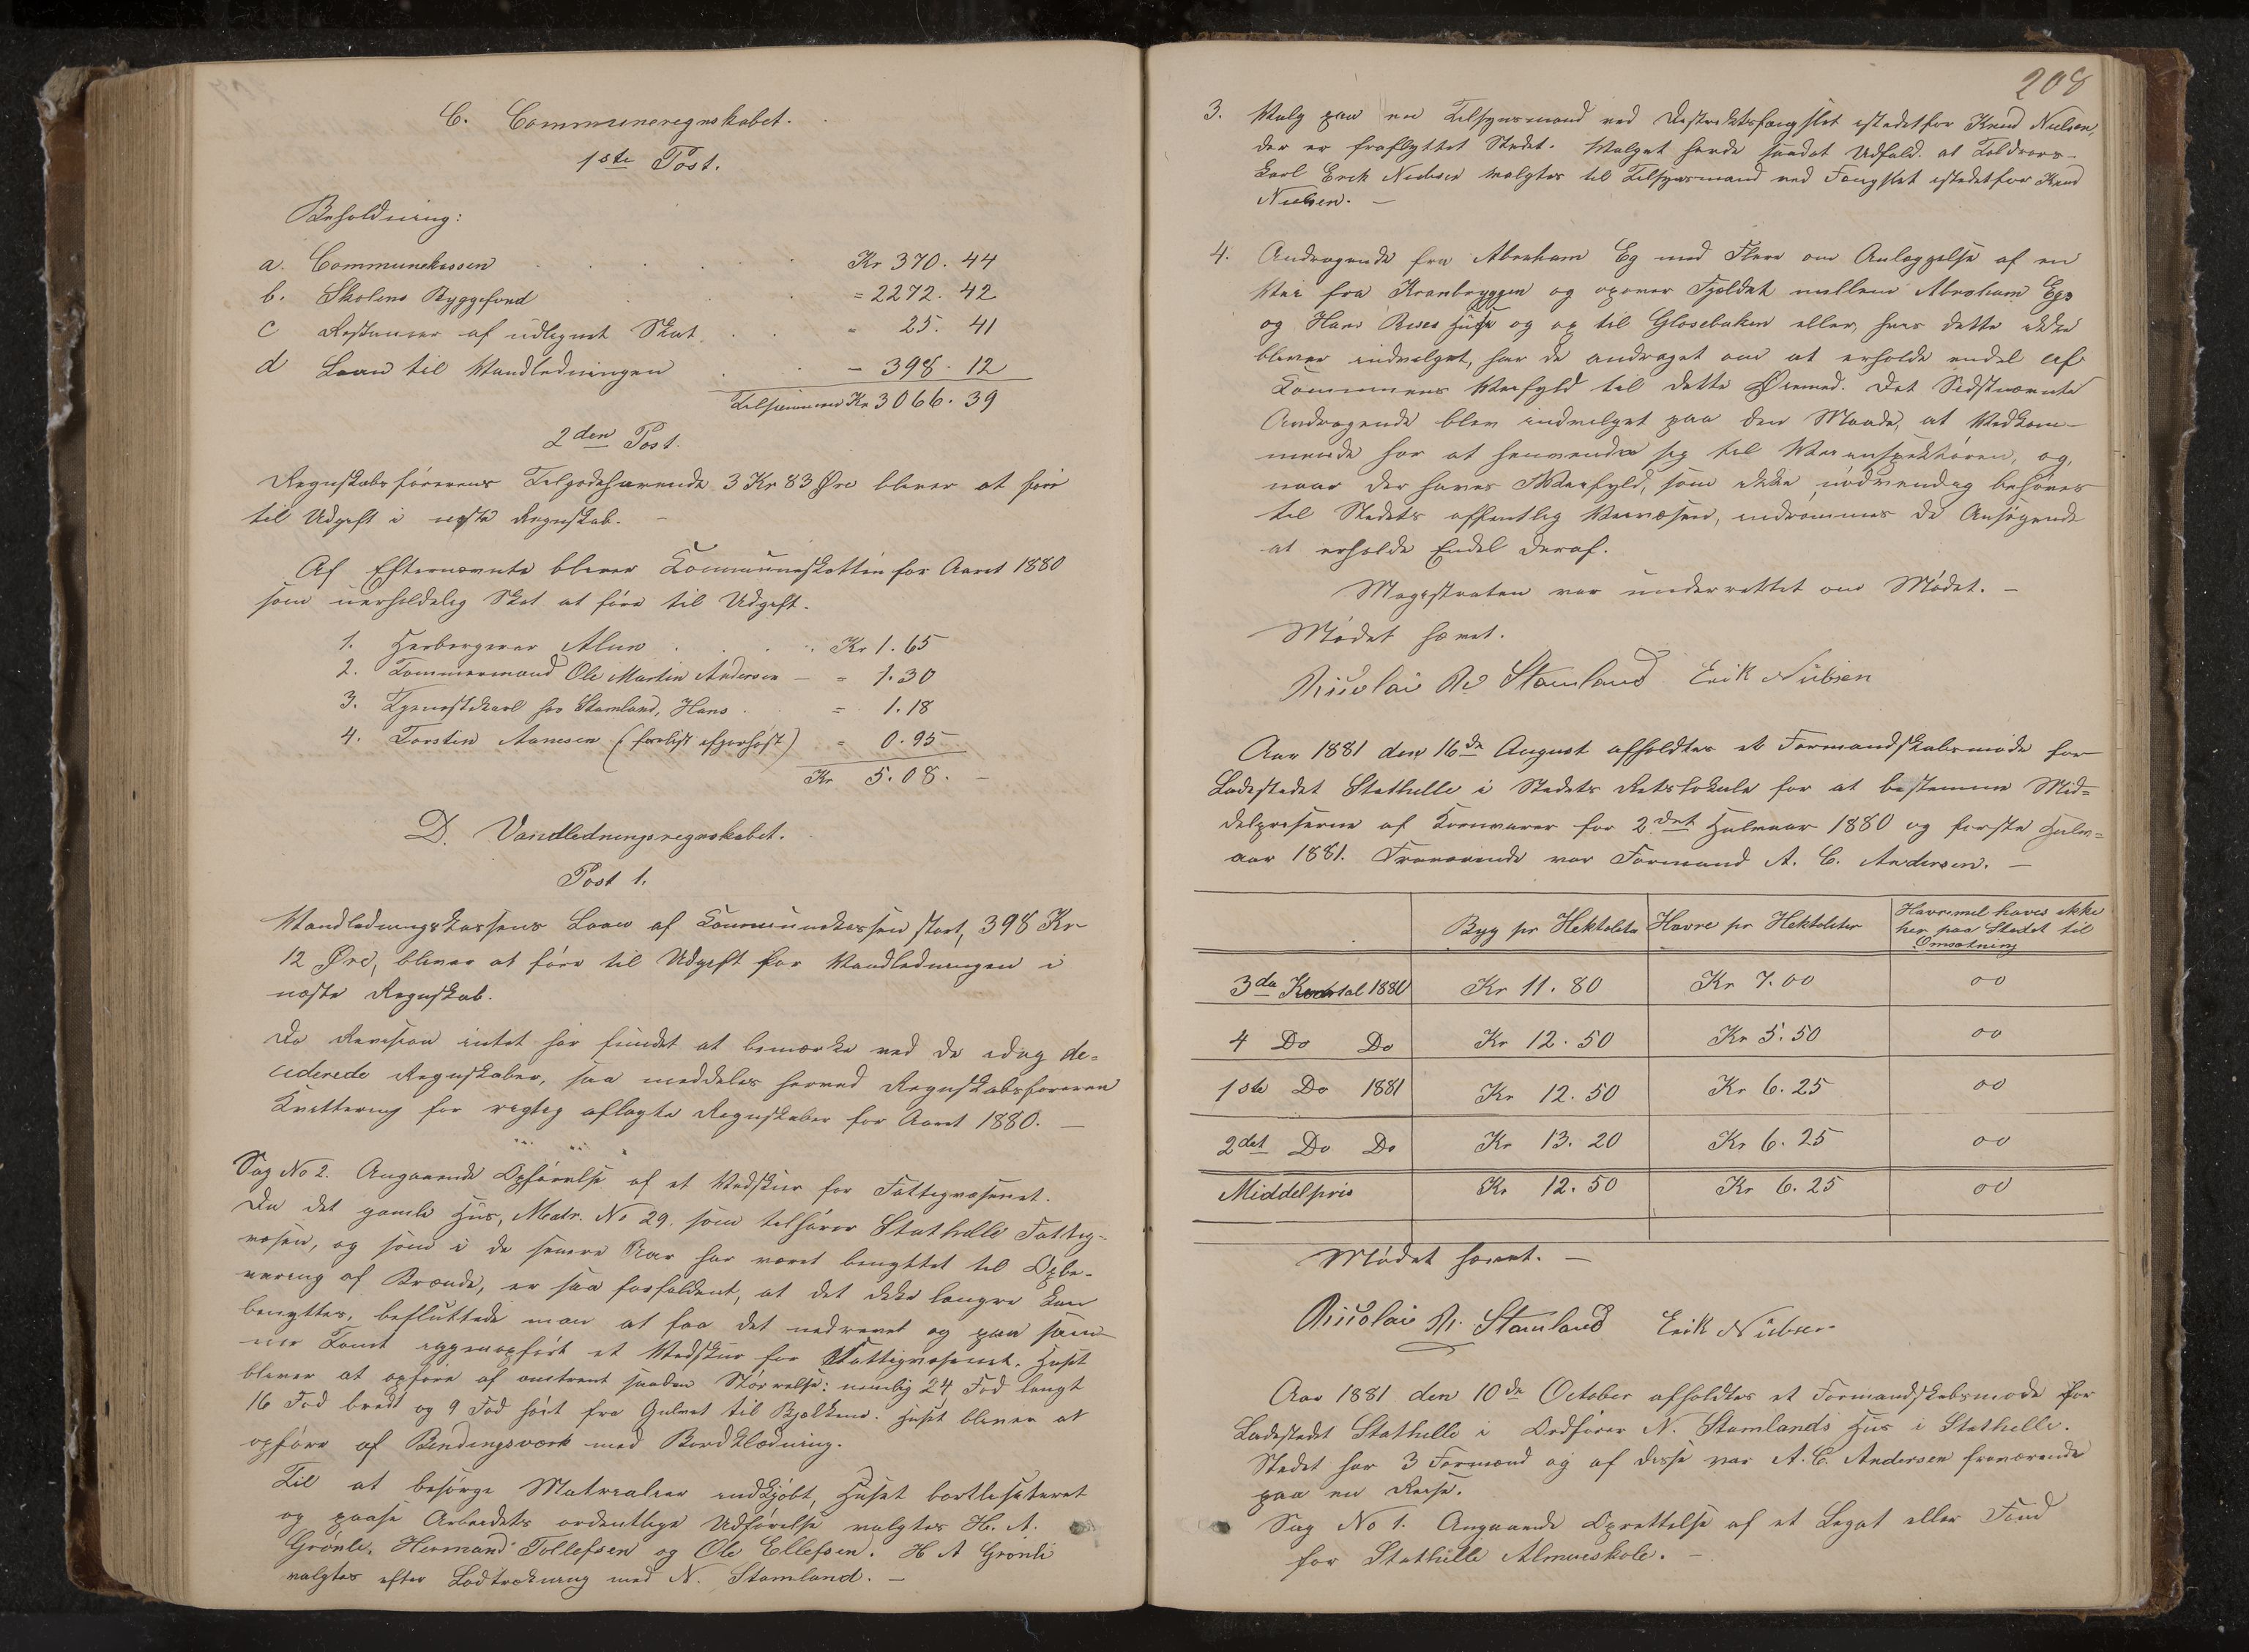 C. Communeregnskabet.
1ste Post.
Beholdning:
a. Communekassen . . . . . Kr 370. 44
b. Skolens Byggefond . . . = 2272. 42
c Restancer af udlignet Skat . . = 25. 41
d Laan til Vandledningen . . - 398. 12
Tilsammen Kr 3066. 39
2den Post.
Regnskabsførerens Tilgodehavende 3 Kr 83 Øre bliver at føre
til Udgift i næste Regnskab. -
Af Efternævnte bliver Kommuneskatten for Aaret 1880
som uerholdelig Skat at føre til Udgift.
1. Herbergerer Alum . . . . Kr 1. 65
2. Tømmermand Ole Martin Andersen - = 1. 30
3. Tjenestekarl hos Stamland, Hans . = 1. 18
4. Torsten Aanesen (forlist ) = 0. 95
Kr 5. 08. -
D. Vandledningsregnskabet.
Post 1.
Vandledningskassens Laan af Kommunekassen stort, 398 Kr
12 Øre, bliver at føre til Udgift for Vandledningen i
næste Regnskab.
Da Revision intet har fundet at bemærke ved de idag de-
ciderede Regnskaber, saa meddeles herved Regnskabsføreren
Kvittering for rigtig aflagte Regnskaber for Aaret 1880. -
Sag No 2. Angaaende Opførelse af et Vedskur for Fattigvæsenet.
Da det gamle Hus, Matr. No 29. som tilhører Stathelle Fattig-
væsen, og som i de senere Aar har været benyttet til Opbe-
varing af Brænde, er saa forfaldent, at det ikke længre kan
benyttes, besluttede man at faa det nedrevet og paa sam-
me Tomt igjenopført et Vedskur for Fattigvæsenet. Huset
bliver at opføre af omtrent saadan Størrelse: nemlig 24 Fod langt
16 Fod bredt og 9 Fod høit fra Gulvet til Bjælken. Huset bliver at
opføre af Bindingsværk med Bordklædning.
Til at besørge Materialier indkjøbt, Huset bortliciteret
og paase Arbeidets ordentlige Udførelse valgtes H. A.
Grønli, Hermand Tollefsen og Ole Ellefsen. H A Grønli
valgtes efter Lodtrækning med N. Stamland. -
208
3. Valg paa en Tilsynsmand ved Distriktsfængslet istedetfor Knud Nielsen,
der er fraflyttet Stedet. Valget havde saadat Udfald. at Toldroers-
karl Erik Nielsen valgtes til Tilsynsmand ved Fængslet istedetfor Knud
Nielsen. -
4. Andragende fra Abraham Eg med Flere om Anlæggelse af en
Vei fra Kranbryggen og opover Fjeldet mellem Abraham Egs
og Hans Huse og op til Glosebaken eller, hvis dette ikke
bliver indvilget, har de andraget om at erholde endel af
Kommunens Veifyld til dette Øiemed. Det Sidstnævnte
Andragende blev indvilget paa den Maade, at Vedkom-
mende har at henvende sig til Veiinspektøren, og,
naar der haves Veifyld, som ikke nødvendig behøves
til Stedets offentlig Veivæsen, indrømmes de Ansøgende
at erholde Endel deraf.
Magistraten var underrettet om Mødet. -
Mødet hævet.
Nicolai N. Stamland Erik Nielsen
Aar 1881 den 16de August afholdtes et Formandskabsmøde for
Ladestedet Stathelle i Stedets Retslokale for at bestemme Mid-
delpriserne af Kornvarer for 2det Halvaar 1880 og første Halv-
aar 1881. Fraværende var Formand A. C. Andersen. -
Byg pr Hektoliter Havre pr Hektoliter Havremel haves ikke
her paa Stedet til
Omsætning
3die Kvartal 1880 Kr 11. 80 Kr 7. 00 oo
4 Do Do Kr 12. 50 Kr 5. 50 oo
1ste Do 1881 Kr 12. 50 Kr 6. 25 oo
2det Do Do Kr 13. 20 Kr 6. 25 oo
Middelpris Kr 12. 50 Kr 6. 25 oo
Mødet hævet. -
Nicolai N. Stamland Erik Nielsen
Aar 1881 den 10de October afholdtes et Formandskabsmøde for
Ladestedet Stathelle i Ordfører N. Stamlands Hus i Stathelle.
Stedet har 3 Formænd og af disse var A. C. Andersen fraværende
paa en Reise.
Sag No 1. Angaaende Oprettelse af et Legat eller Fond
for Stathelle Almueskole. -